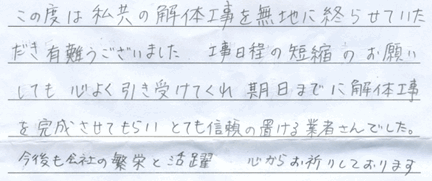 この度は私共の解体工事を無地に終らせていた
だき有難うございました　工事日程の短縮のお願い
しても心よく引き受けてくれ　期日までに解体工事
を完成させてもらいとても信頼の置ける業者さんでした。
今後も会社の繁栄と活躍　心からお祈りしております